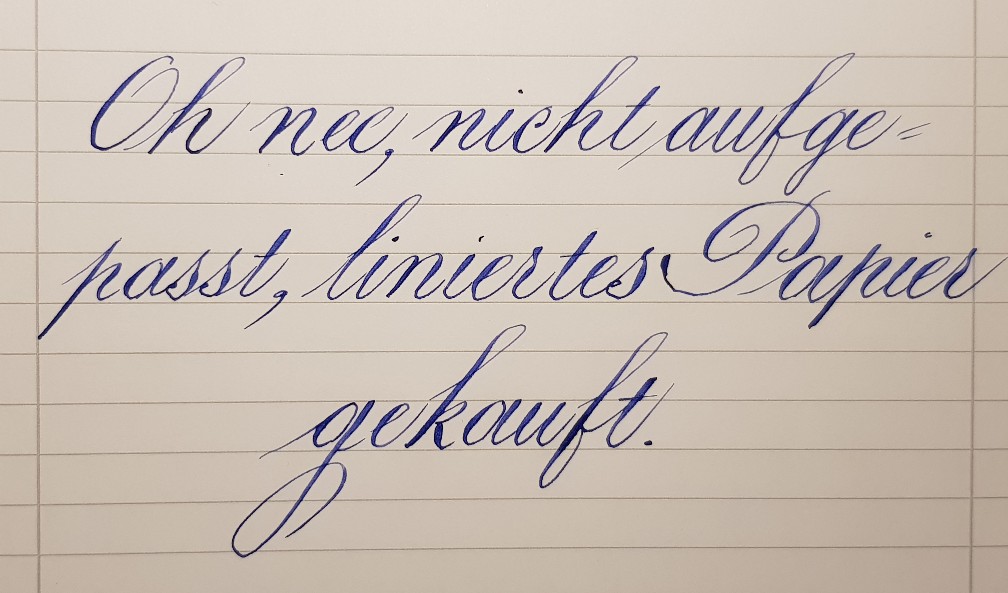 Oh nee, nicht aufge=
passt, liniertes Papier
gekauft.